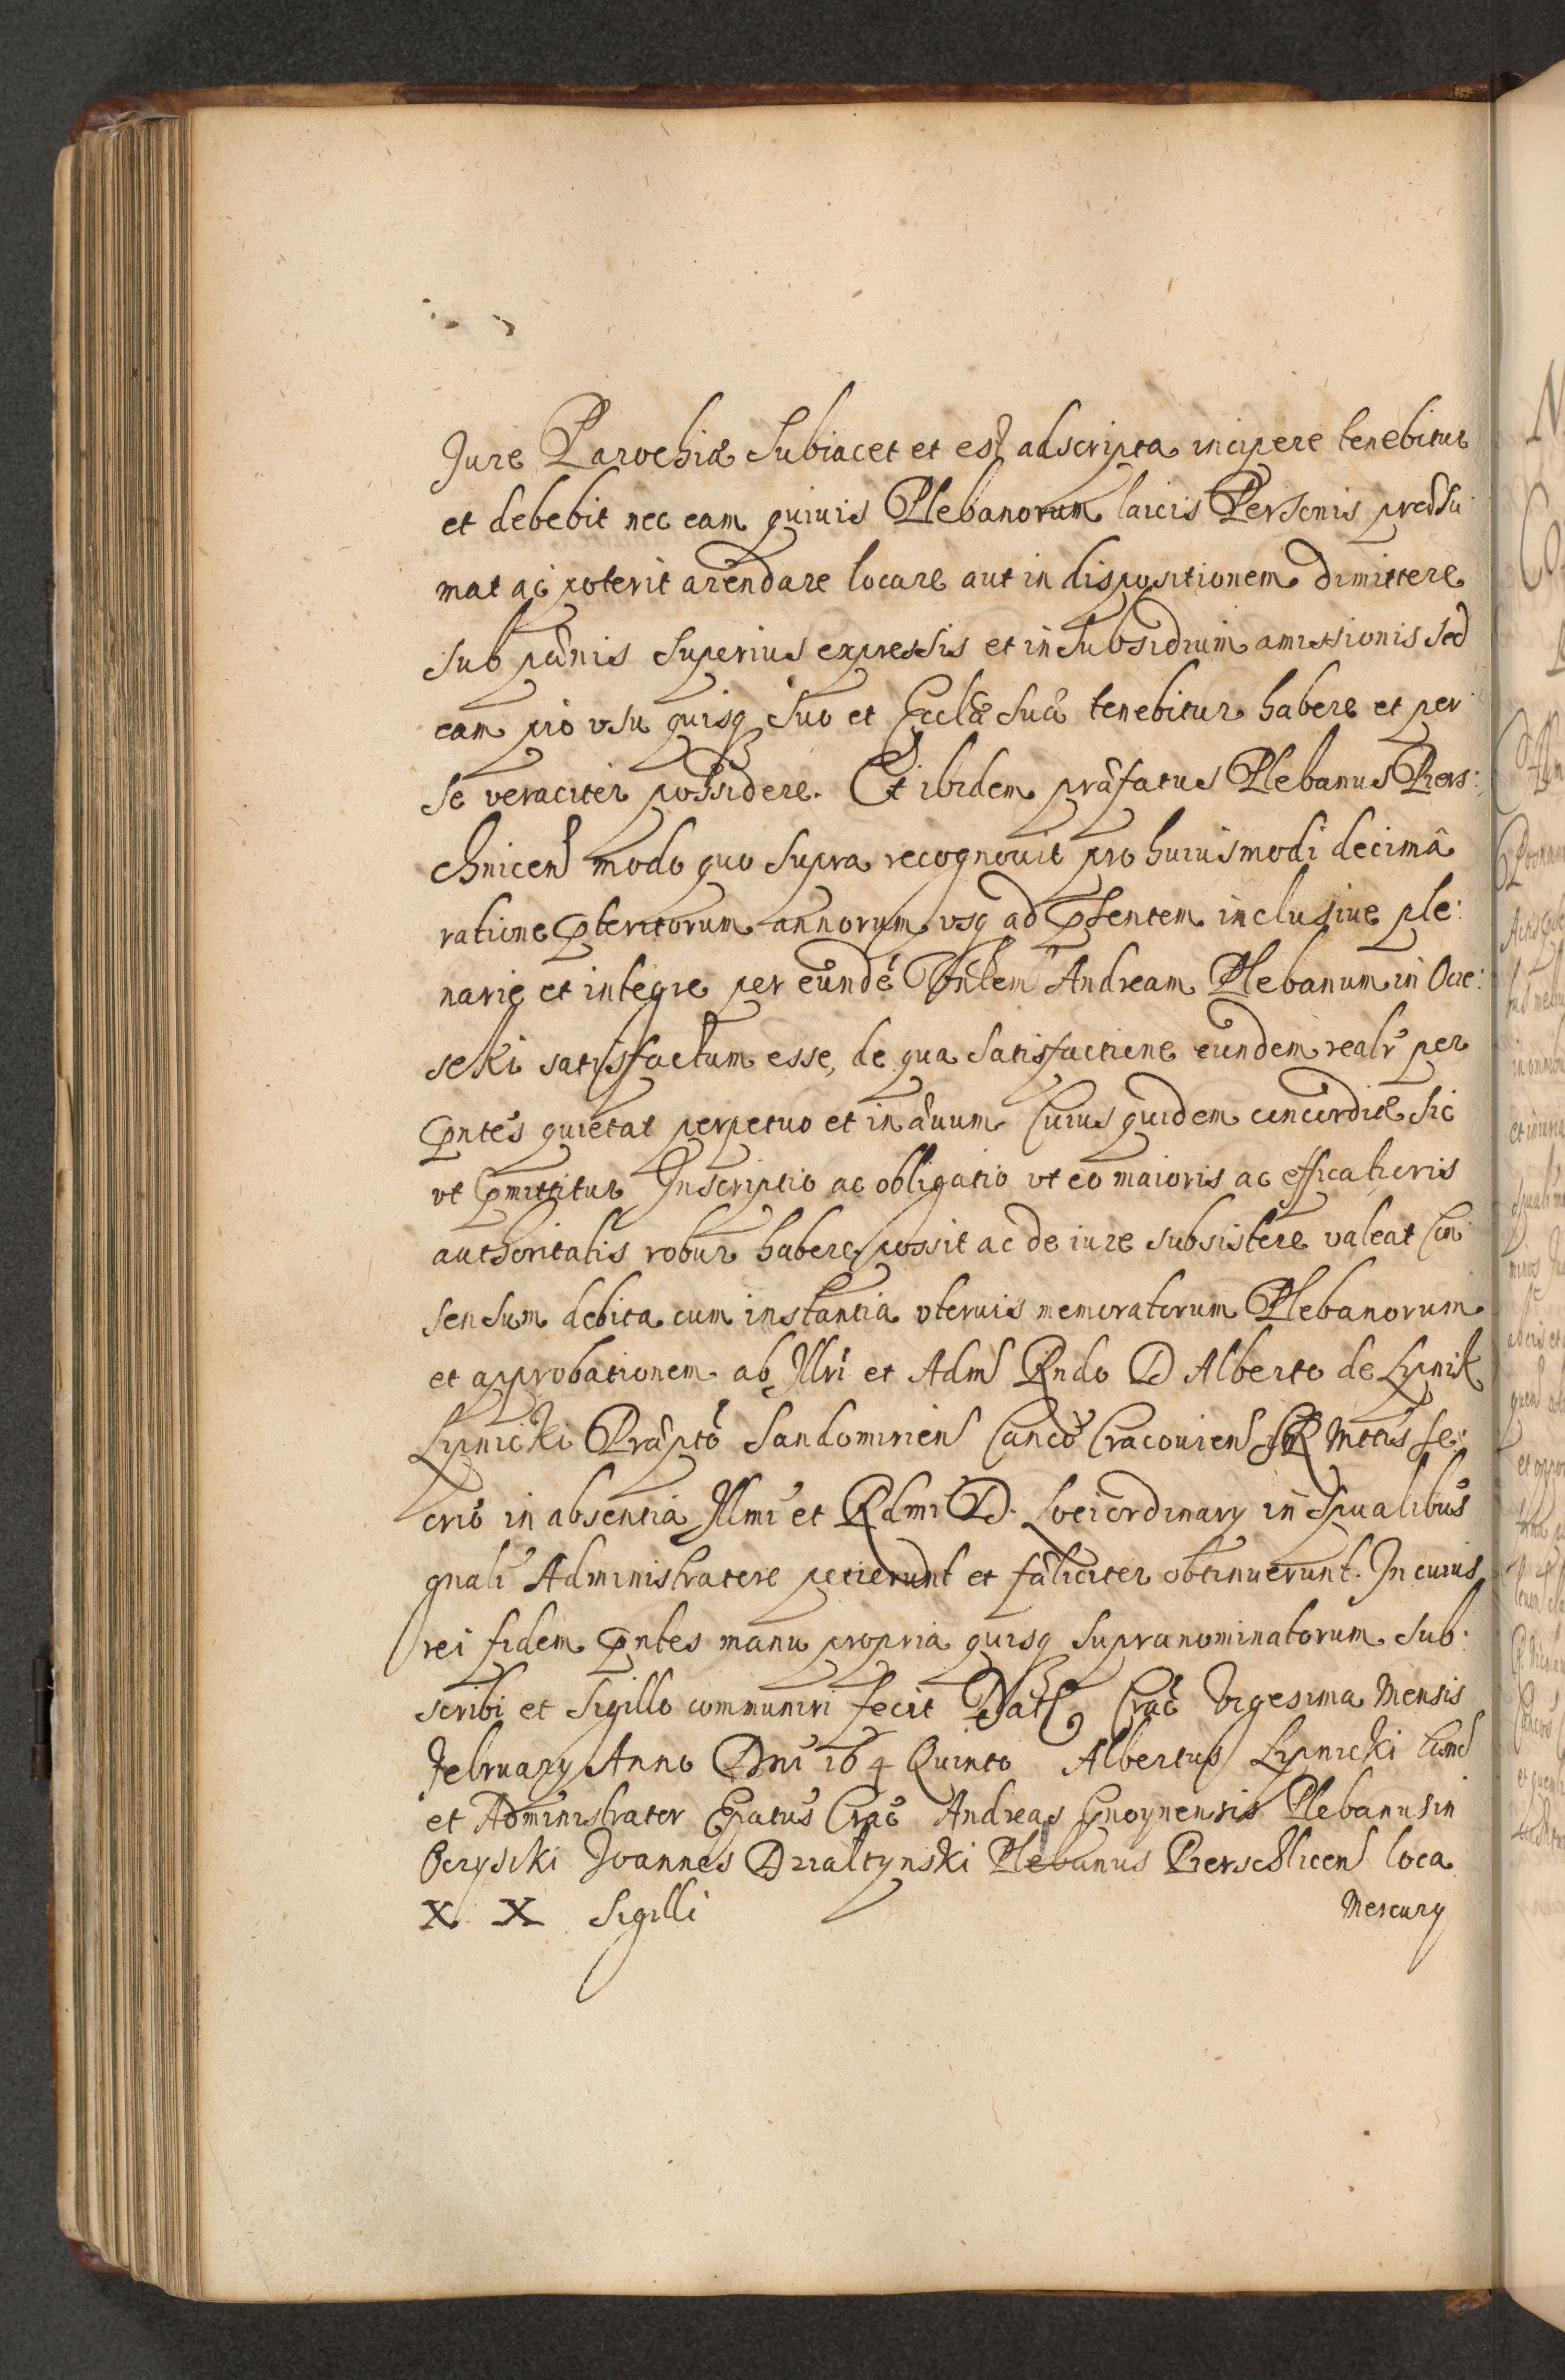 Jure Parochiæ Subiacet et est adscripta incipere tenebitur
et debebit nec eam quiuis Plebanorum laicis Personis præsu
mat ac poterit arendare locare aut in dispositionem dimittere
sub pænis superius expressis et in subsidium amissionis sed
eam pro vsu quisq suo et Ecclæ suæ tenebitur habere et per
se veraciter possidere. Et ibidem præfatus Plebanus Piers:
chnicen modo quo supra recognouit pro huiusmodi decimâ
ratione pteritorum annorum vsq ad psentem inclusiue ple:
narie et integre per eundé Andream Plebanum in Ocie:
seki satisfactum esse, de qua satisfactione eundem realr per
pntes quietat perpetuo et in æuum Cuius quidem concordiæ sic
vt pmittitur Inscriptio ac obligatio vt eo maioris ac efficatioris
authoritatis robur habere possit ac de iure subsistere valeat Con
sensum debita cum instantia vteruis memoratorum Plebanorum
et approbationem ab Illri et Adm Rndo D Alberto de Lipnik
Lipnicki Præpto Sandomirien Canco Cracouien SR Mttis Se:
crio in absentia Illmi et Rdmi D. Loci ordinary in spualibus
gnali Administratore petierunt et fæliciter obtinuerunt. In cuius
rei fidem pntes manu propria quisq supranominatorum sub:
scribi et Sigillo communiri fecit Dat Crac Vigesima Mensis
February Anno Dni 164 Quinto Albertus Lipnicki
et Administrator Epatus Crac Andreas Gnoynensis Plebanus in
Oczyscki Joannes Dzialtynski Plebanus Pierschlicen loca
X X Sigilli
Mercury